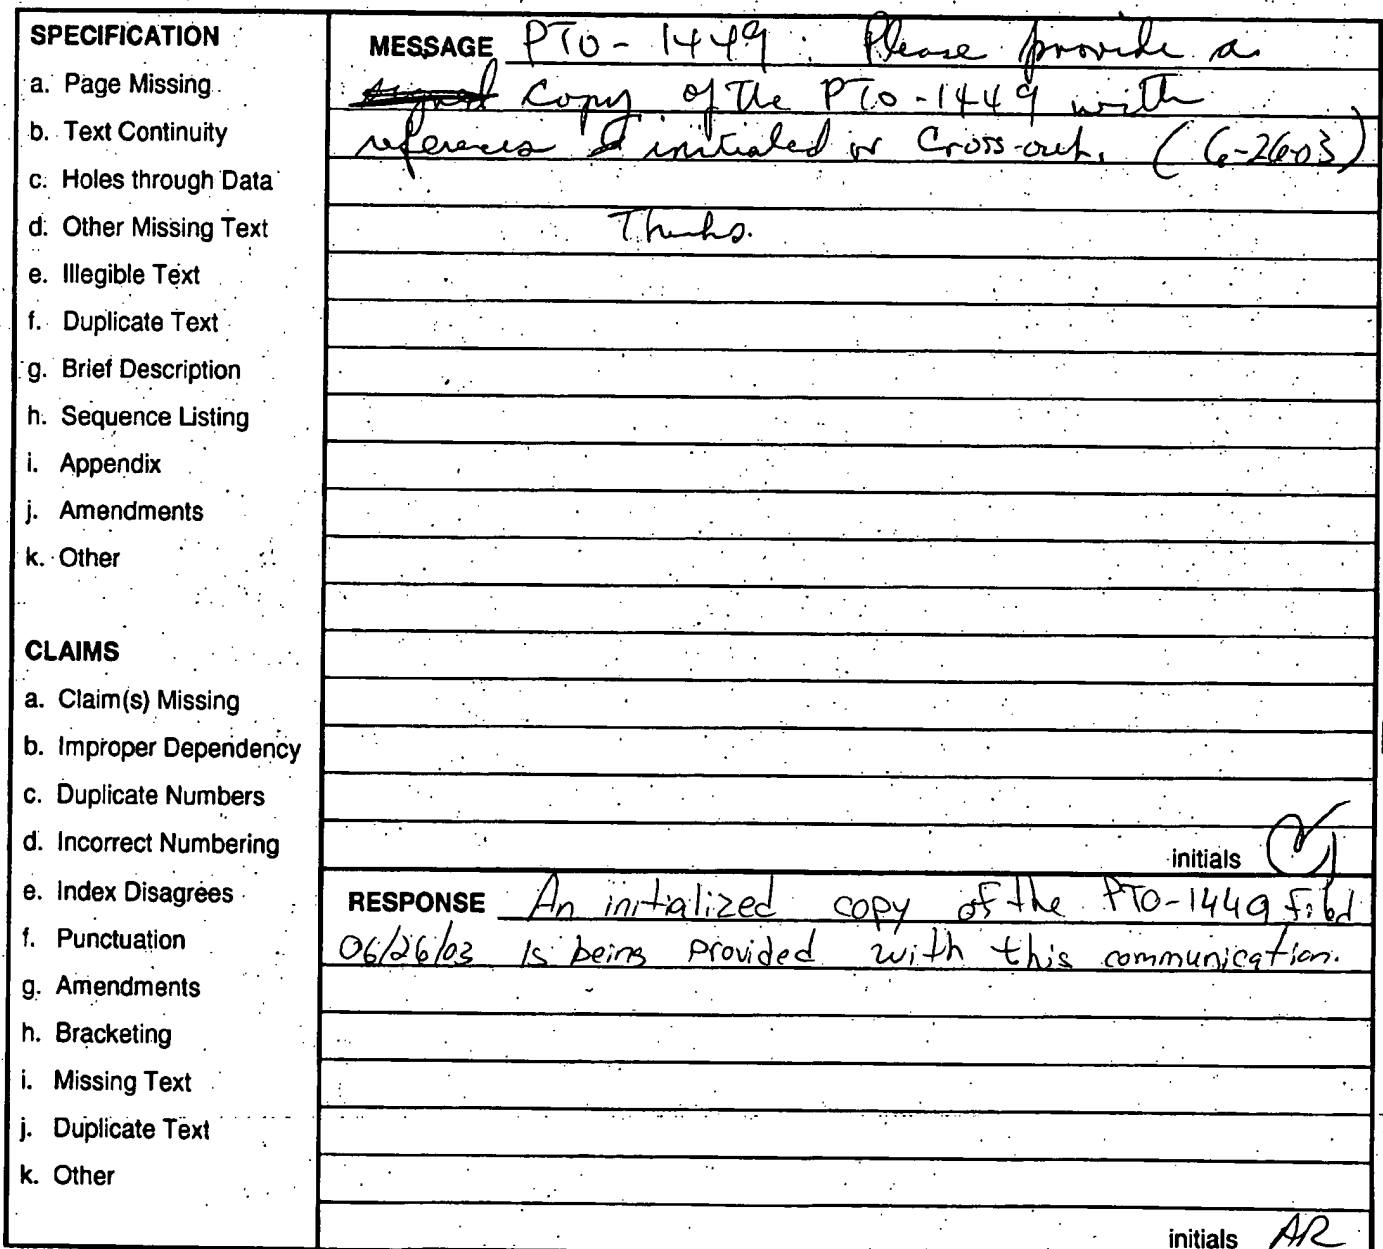 SPECIFICATION
a. Page Missing
b. Text Continuity
c. Holes through Data
d. Other Missing Text
e. Illegible Text
f. Duplicate Text
g. Brief Description
h. Sequence Listing
i. Appendix
j. Amendments
k. Other
CLAIMS
a. Claim(s) Missing
b. Improper Dependency
c. Duplicate Numbers
d. Incorrect Numbering
e. Index Disagrees
f. Punctuation
g. Amendments
h. Bracketing
i. Missing Text
j. Duplicate Text
k. Other
MESSAGE PTO-1449: Please provide a
copy of the PTO-1449 with
references initialed or cross-out. (6-26-03)
Thanks.
initials
RESPONSE An initialized copy of the PTO-1449 filed
06/26/03 is being provided with this communication.
initials AR